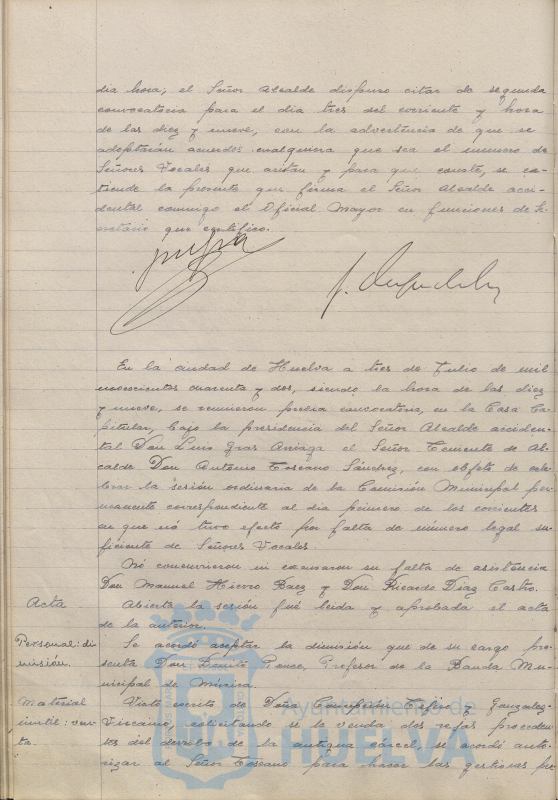 dia hora; el Señor Alcalde dispuso citar de segunda
convocatoria para el dia tres del corriente y hora
de las diez y nueve, con la advertencia de que se
adoptarán acuerdos cualquiera que sea el número de
Señores Vocales que asistan y para que conste, se ex-
tiende la presente que firma el Señor Alcalde acci-
dental conmigo el Oficial Mayor en funciones de Se-
cretario que certifico.
En la ciudad de Huelva a tres de Julio de mil
novecientos cuarenta y dos, siendo la hora de las diez
y nueve, se reunieron previa convocatoria, en la Casa Ca-
pitular, bajo la presidencia del Señor Alcalde acciden-
tal Don Luis Gras Arriaga el Señor Teniente de Al-
calde Don Antonio Toscano Sánchez, con objeto de cele-
brar la sesión ordinaria de la Comisión Municipal per-
manente correspondiente al dia primero de los corrientes
que nó tuvo efecto por falta de número legal su-
ficiente de Señores Vocales.
Nó concurrieron ni excusaron su falta de asistencia
Don Manuel Hierro Baez y Don Ricardo Diaz Castro.
Acta
Abierta la sesión fué leida y aprobada el acta
de la anterior.
Personal: di-
misión.
Se acordó aceptar la dimisión que de su cargo pre-
senta Don Benito Ponce, Profesor de la Banda Mu-
nicipal de Música.
Material
inutil: ven-
ta.
Visto escrito de Doña Concepción y Gonzalez-
Viscaino, solicitando se le venda dos rejas proceden-
tes del derribo de la antigua cárcel, se acordó auto-
rizar al Señor Toscano para hacer las gestiones
Ayuntamiento de
HUELVA